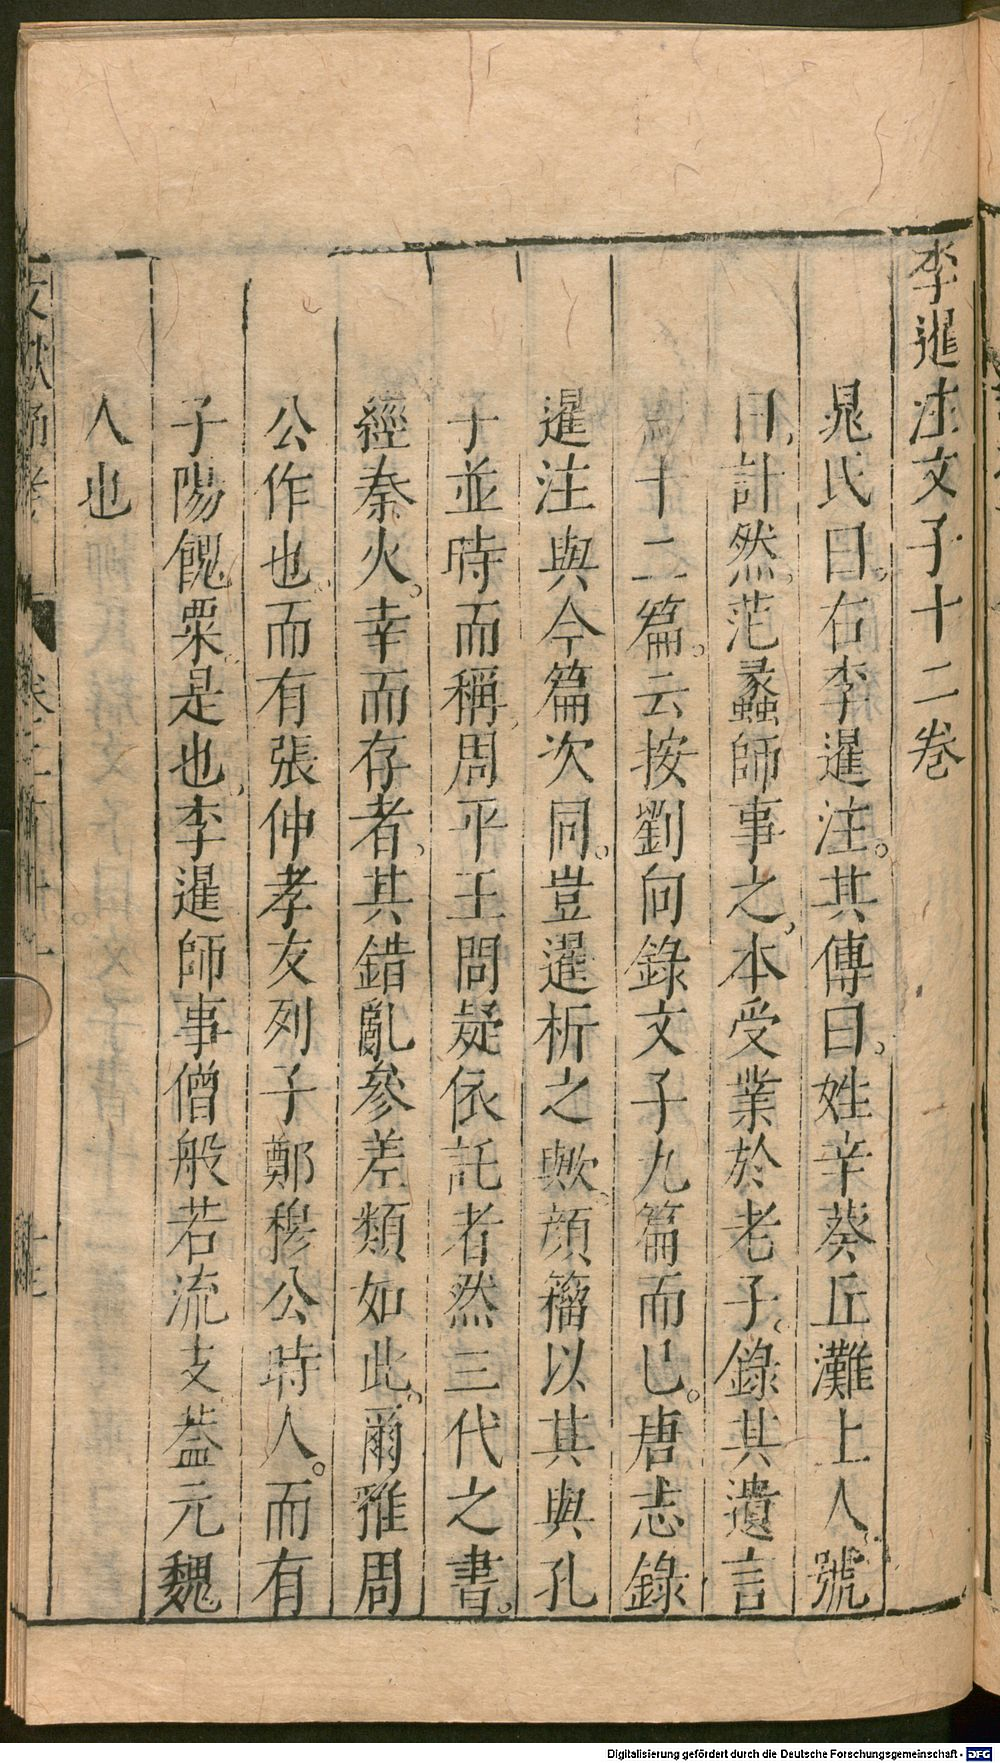 李暹注文子十二卷
晁氏曰右李暹注其傳曰姓辛葵丘濮上人號
曰計然范蠡師事之本受業於老子錄其遺言
爲十二篇云按劉向錄文子九篇而已唐志錄
暹注與今篇次同豈暹析之歟顏籀以其與孔
子並時而稱周平王問疑依託者然三代之書
經秦火幸而存者其錯亂參差類如此爾雅周
公作也而有張仲孝友列子鄭穆公時人而有
子陽餽粟是也李暹師事僧般若流支葢元魏
人也
Digitalisierung gefördert durch die Deutsche Forschungsgemeinschaft - DFG